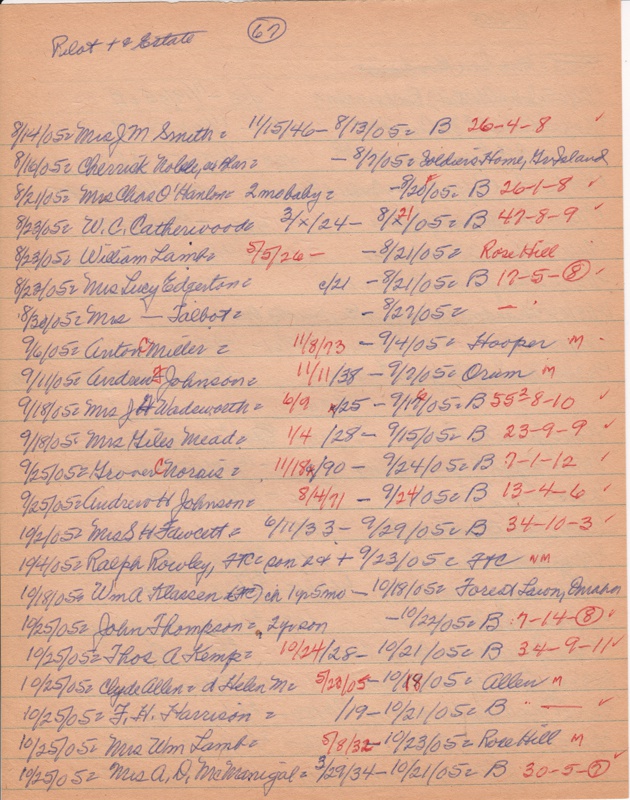 Pilot + & Estate
67
8/14/05= Mrs J M Smith= 11/15/46 – 8/13/05= B 26-4-8 ✓
8/16/05= Cherrick Nolsly, – 8/7/05= Soldiers Home, Gr Island
8/21/05= Mrs Chas O'Hanlon= 2 mo baby= – 8/20/05= B 26-1-8 ✓
8/23/05= W. C. Catherwood= 3/x/24 – 8/21/05= B 47-8-9 ✓
8/23/05= William Lamb= 5/5/26 – – 8/21/05= Rose Hill
8/23/05= Mrs Lucy Edgerton= c/21 – 8/21/05= B 17-5-8 ✓
8/30/05= Mrs — Talbot= – 8/27/05= —
9/6/05= Anton C Miller= 11/8/73 – 9/4/05= Hooper M
9/11/05= Andrew J Johnson= 11/11/38 – 9/7/05= Orum M
9/18/05= Mrs J H Wadsworth= 6/9 /25 – 9/19/05= B 55²-8-10 ✓
9/18/05= Mrs Giles Mead= 1/4 /28 – 9/15/05= B 23-9-9 ✓
9/25/05= Grover C Norais= 11/18/90 – 9/24/05= B 7-1-12 ✓
9/25/05= Andrew H Johnson= 8/4/71 – 9/24/05= B 13-4-6 ✓
10/2/05= Mrs S H Fawcett= 6/11/33 – 9/29/05= B 34-10-3 ✓
10/4/05= Ralph Rowley, FTC= son + 9/23/05= FTC NM
10/18/05= Wm A Klassen (FTC) ch 1 yr 5 mo – 10/18/05= Forest Lawn, Omaha
10/25/05= John Thompson= 2 yr son – 10/22/05= B 7-14-8 ✓
10/25/05= Thos A Kemp= 10/24/28 – 10/21/05= B 34-9-11 ✓
10/25/05= Clyde Allen= d Helen M= 5/28/05 – 10/18/05= Allen M
10/25/05= F. H. Harrison= /19 – 10/21/05= B " — ✓
10/25/05= Mrs Wm Lamb= 5/8/32 – 10/23/05= Rose Hill M
10/25/05= Mrs A, D, McManigal= 3/29/34 – 10/21/05= B 30-5-7 ✓